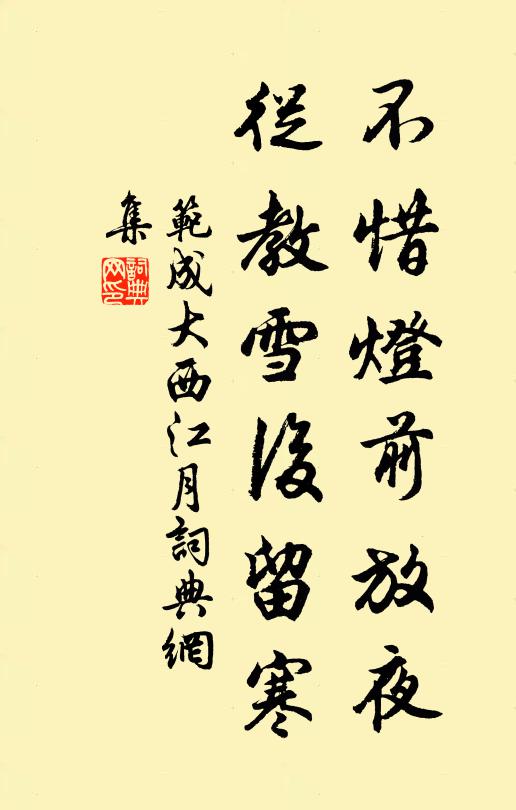 不惜燈前放夜
從教雪後留寒
範成大西江月詞典網
集
詞典網印